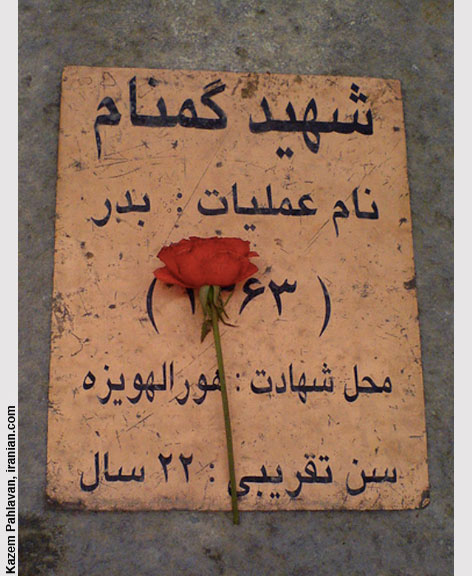 شهید گمنام
نام عملیات : بدر
( ۶۳ )
محل شهادت : هورالهویزه
سن تقریبی : ۲۲ سال
Kazem Pahlavan, iranian.com